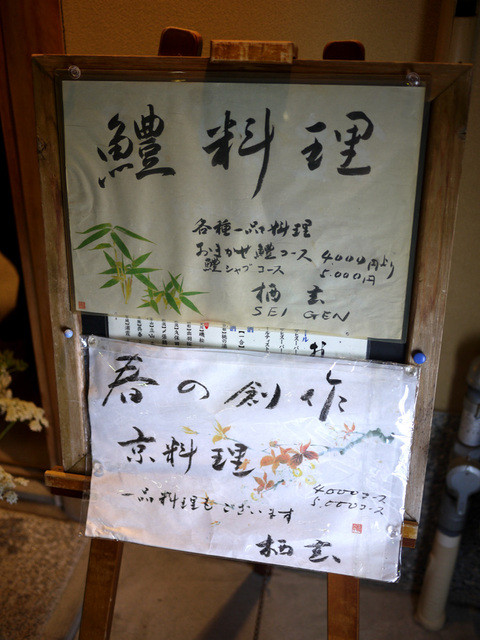 鱧料理
各種一品料理
おまかせ鱧コース 4.000円より
鱧シャブコース 5.000円
栖玄
SEI GEN
春の創作
京料理
4000コース
5.000コース
一品料理もございます
栖玄